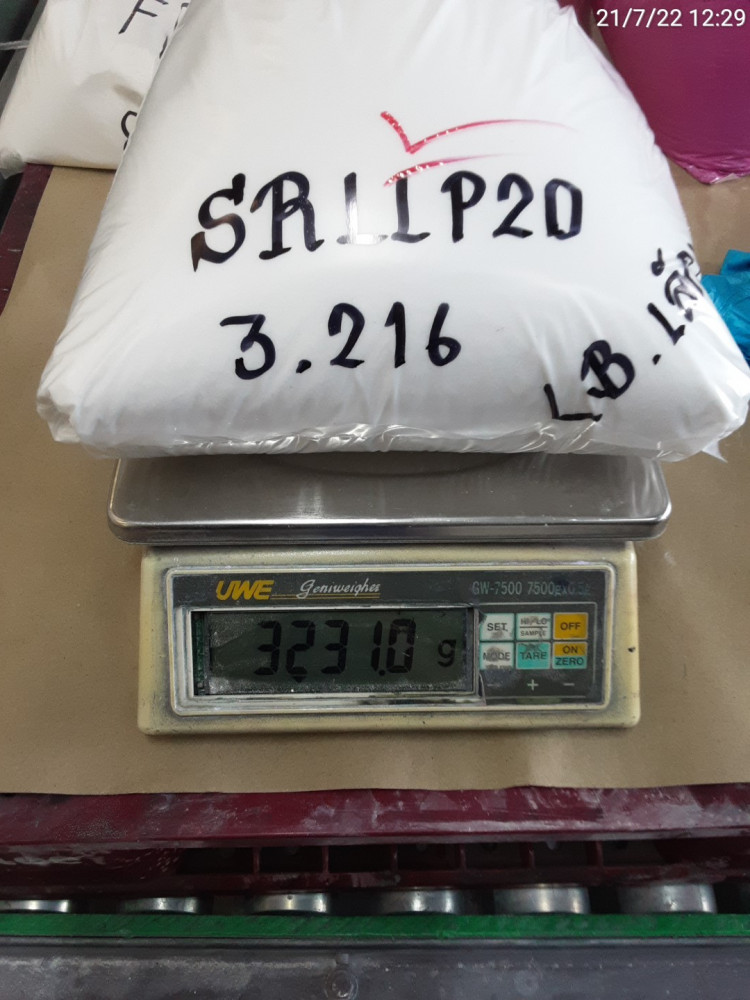 21/7/22 12:29
F
SRLLP20
3.216
L.B.
UWE Geniweigher GW-7500 7500gx0.5g
3231.0 g
SET HI/LO SAMPLE OFF
MODE TARE ON ZERO
+ −